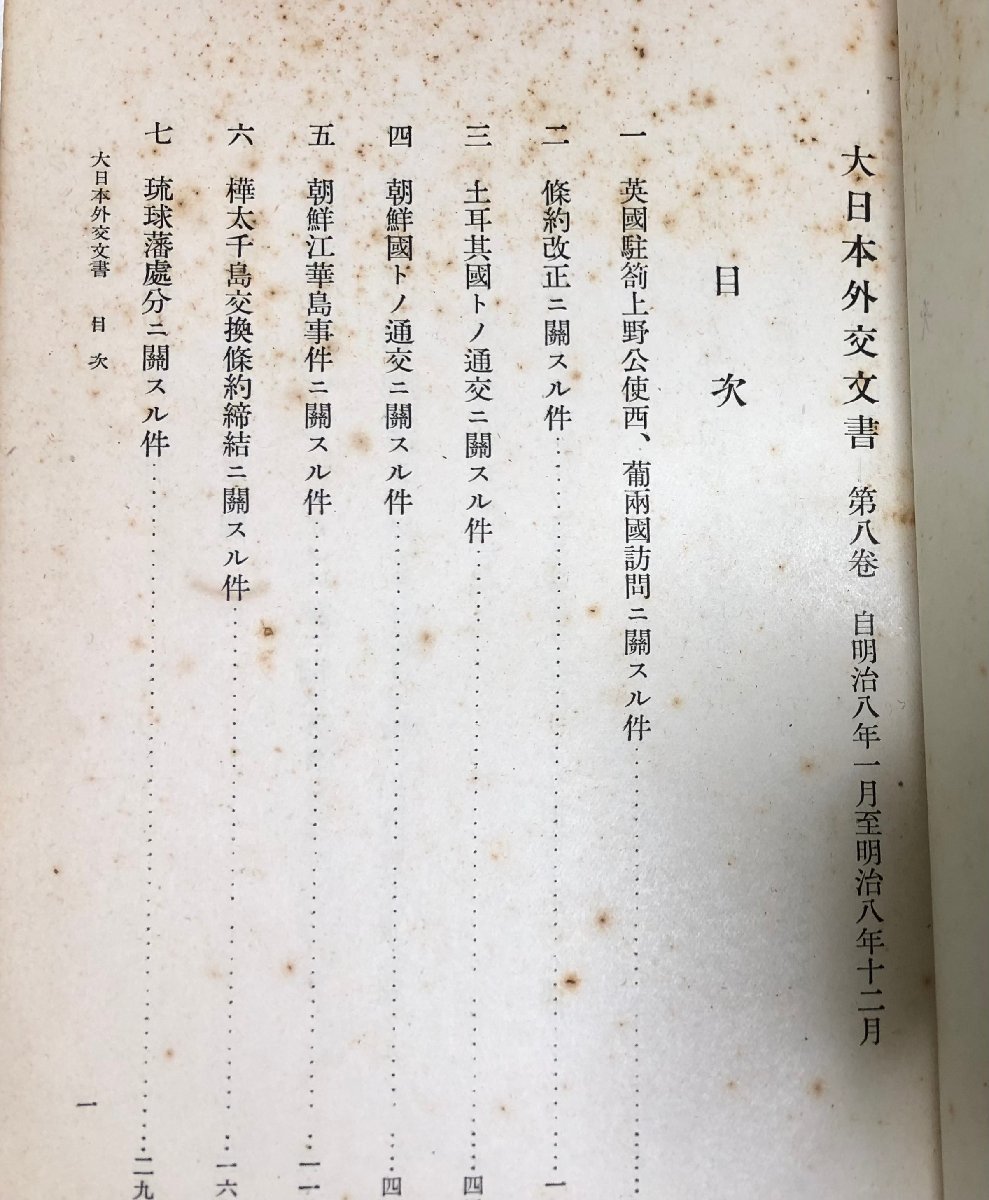 大日本外交文書 第八卷 自明治八年一月至明治八年十二月
目次
一 英國駐箚上野公使西、葡兩國訪問ニ關スル件
二 條約改正ニ關スル件 一
三 土耳其國トノ通交ニ關スル件 四
四 朝鮮國トノ通交ニ關スル件 四
五 朝鮮江華島事件ニ關スル件 一一
六 樺太千島交換條約締結ニ關スル件 一六
七 琉球藩處分ニ關スル件 二九
大日本外交文書 目次 一